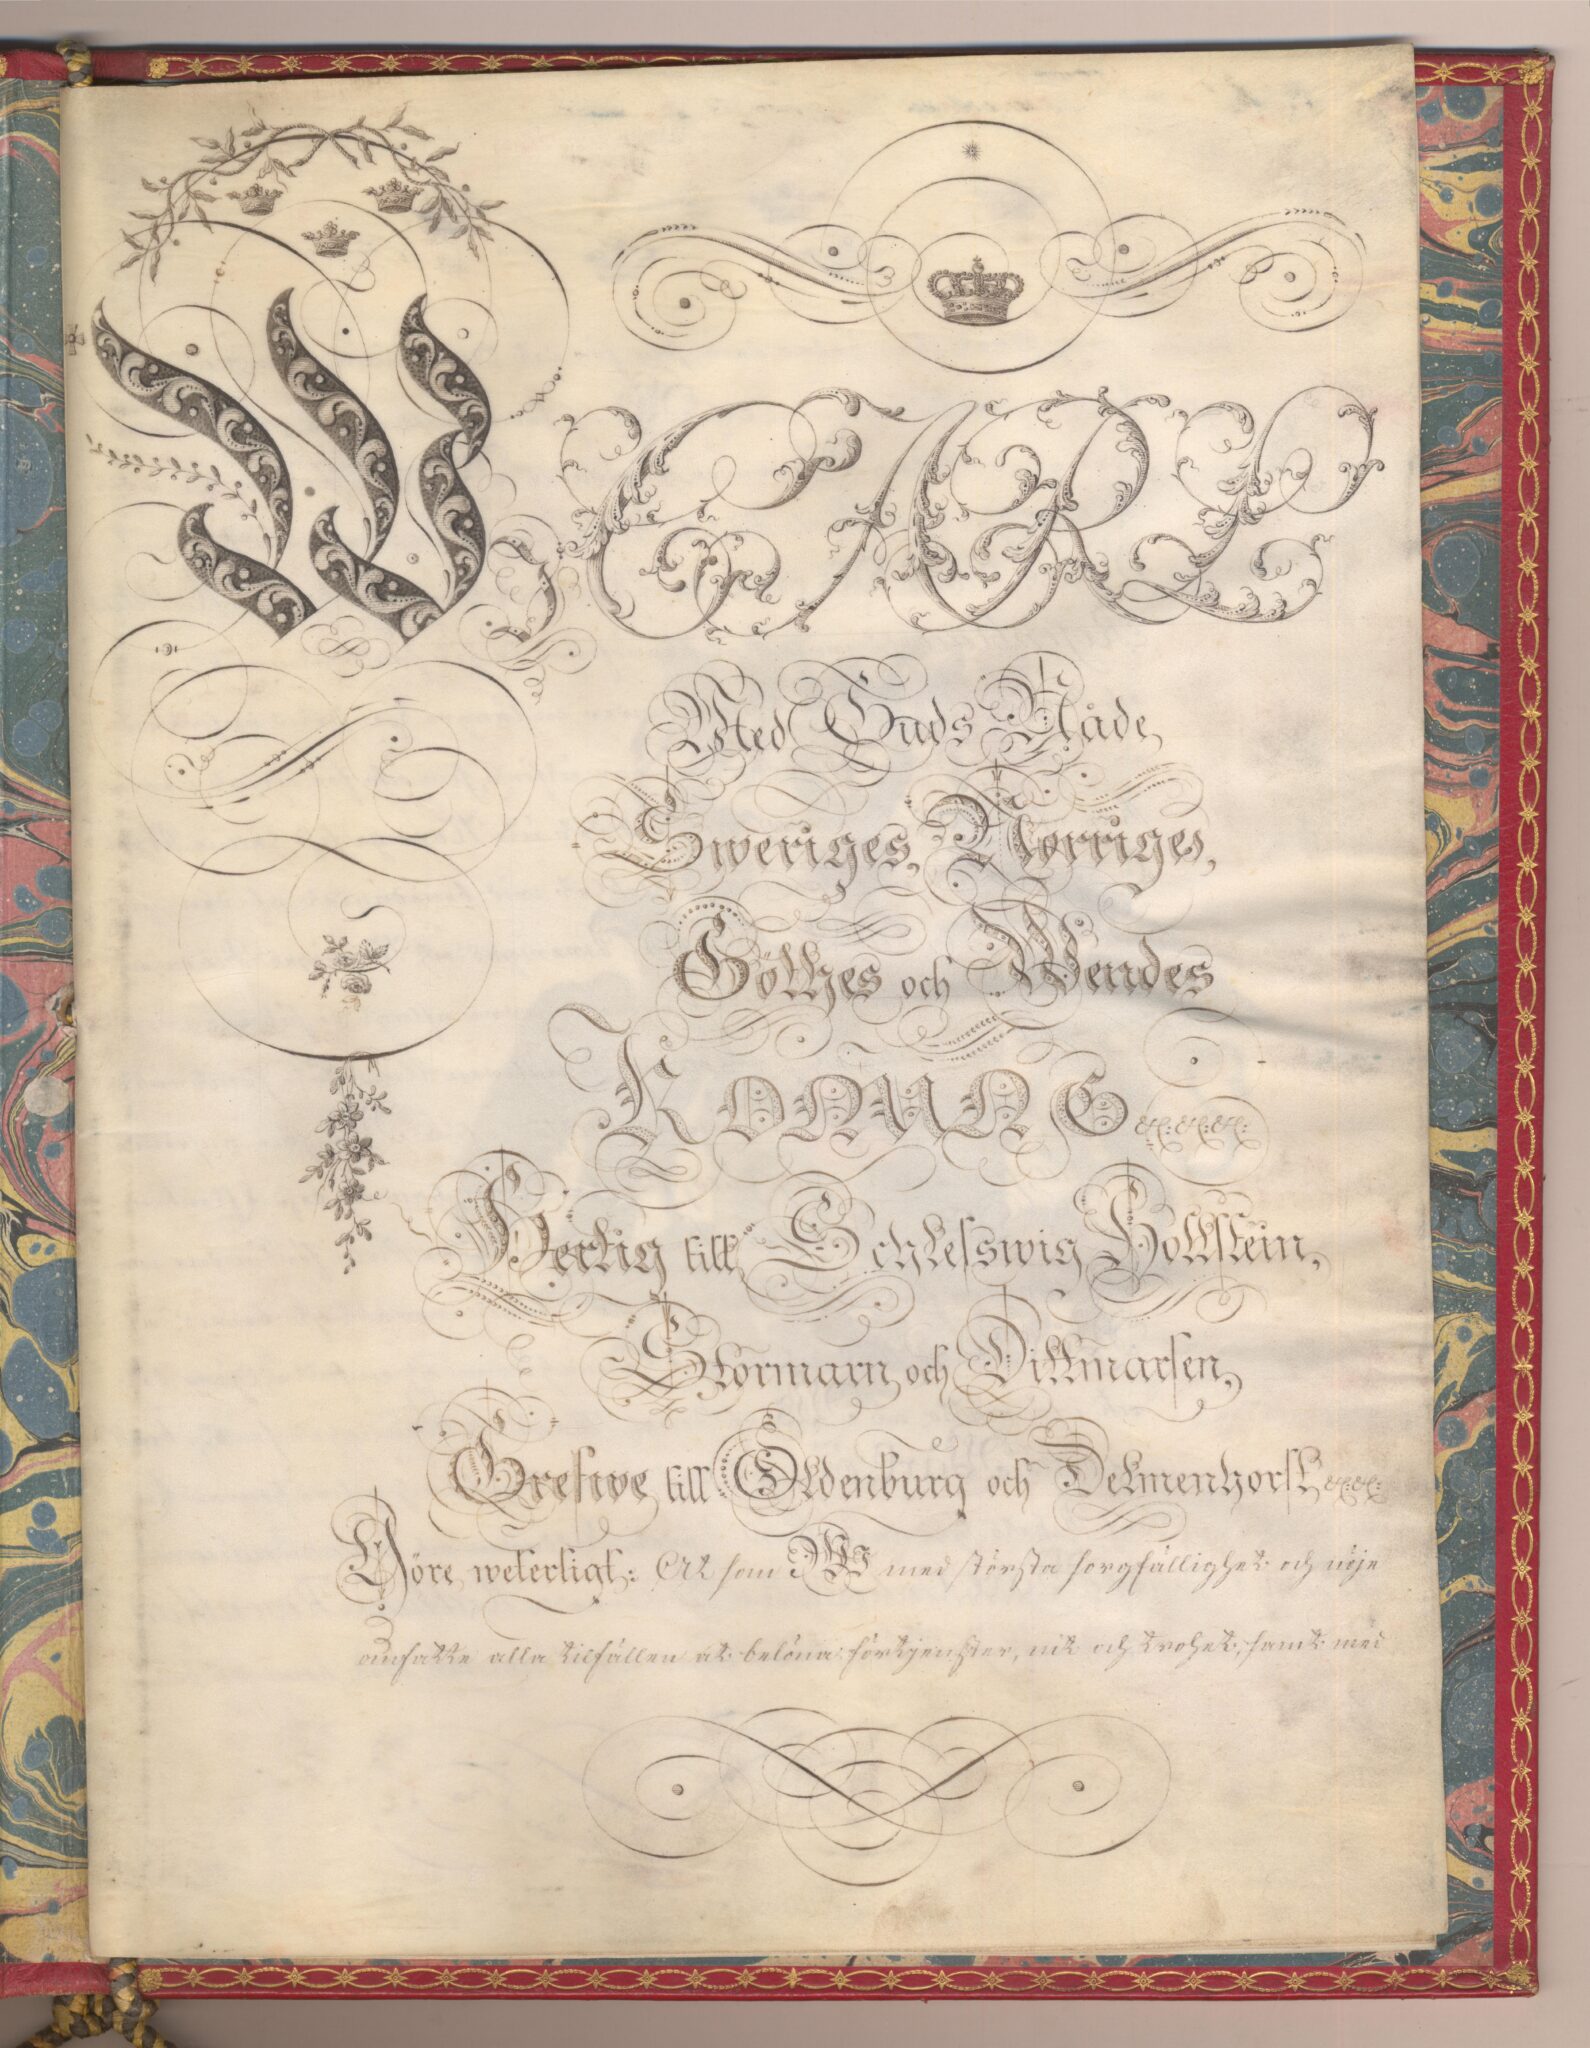 Wj CARL
Med Guds Nåde
Sweriges, Norriges,
Göthes och Wendes
KONUNG &c: &c: &c:
Hertig till Schlesswig Hollstein,
Stormarn och Dittmarsen,
Grefwe till Oldenburg och Delmenhorst &c: &c:
Göre weterligt: At som Wj med största sorgfällighet och nöje
omfatte alla tilfällen at belöna förtjenster, nit och trohet, samt med